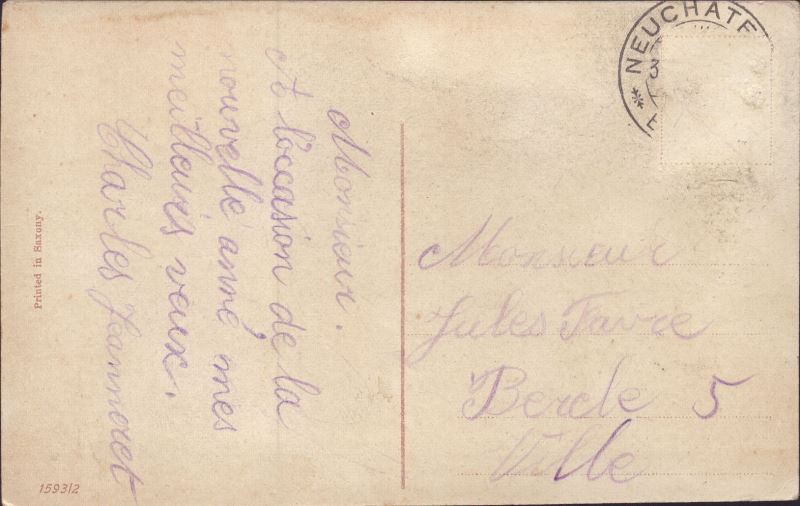 Monsieur.
A l'occasion de la
nouvelle anné, mes
meilleurs vœux.
Charles Jeanneret
Monsieur
Jules Favre
Bercle 5
Ville
NEUCHATE
3
Printed in Saxony.
1593/2